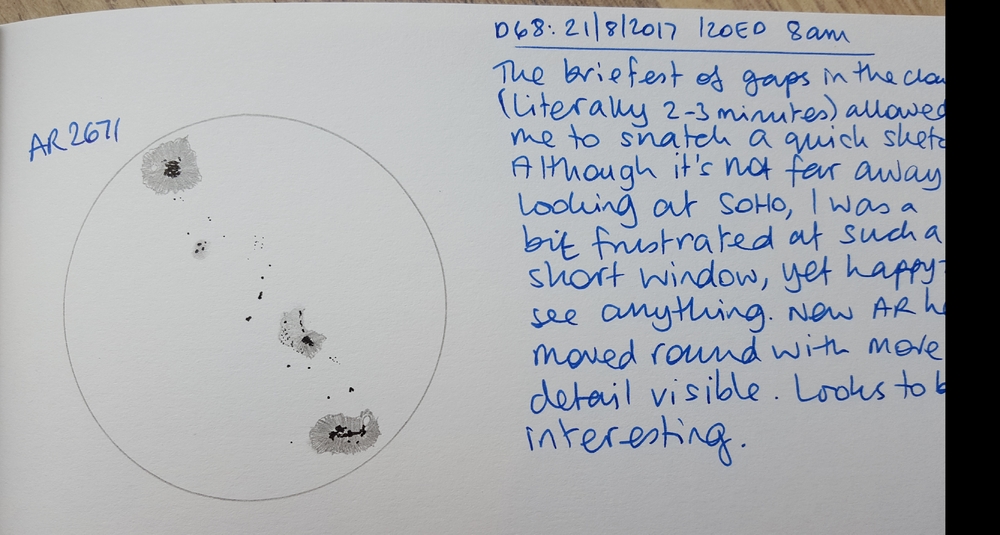 AR2671
D68: 21/8/2017 120ED 8am
The briefest of gaps in the clou
(literally 2-3 minutes) allowed
me to snatch a quick sketc
Although it's not far away
looking at SOHO, I was a
bit frustrated at such a
short window, yet happy
see anything. New AR h
moved round with more
detail visible. Looks to b
interesting.